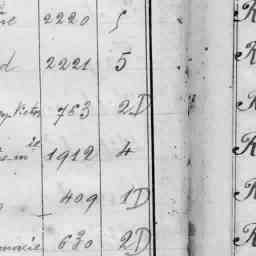 2220 5 R
d 2221 5 R
Victor 763 2D R
1912 4 R
409 1D R
630 2D R